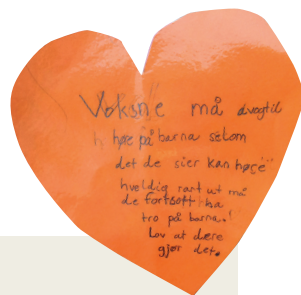 Voksne må
høre på barna selom
det de sier kan høre
hveldig rart ut må
de fortsatt ha
tro på barna.!
Lov at dere
gjør det.